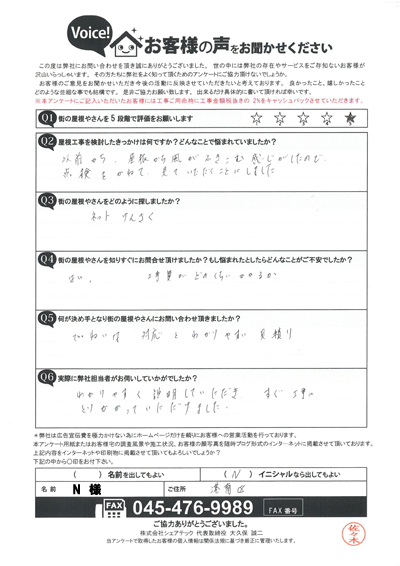 Voice!
お客様の声をお聞かせください
この度は弊社にお問い合わせを頂き誠にありがとうございました。世の中には弊社の存在やサービスをご存知ないお客様が
沢山いらっしゃいます。その方たちに弊社をよく知って頂くためのアンケートにご協力頂けないでしょうか。
お客様のご意見をお聞かせいただき今後の活動に反映させていただきたいと考えております。良かったこと、嬉しかったこと
どのような些細な事でも結構です。是非ご協力お願い致します。出来るだけ具体的に書いて頂ければ幸いです。
※本アンケートにご記入いただいたお客様には工事ご用命時に工事金額税抜きの 2%をキャッシュバックさせていただきます。
Q1 街の屋根やさんを5段階で評価をお願いします ☆ ☆ ☆ ☆ ★
Q2 屋根工事を検討したきっかけは何ですか？どんなことで悩まれていましたか？
以前から、屋根から風がふきこむ感じがしたので、
点検をかねて、見ていただくことにしました
Q3 街の屋根やさんをどのように探しましたか？
ネット けんさく
Q4 街の屋根やさんを知りすぐにお問合せ頂けましたか？もし悩まれたとしたらどんなことがご不安でしたか？
はい。 工事費がどれくらいかかるか
Q5 何が決め手となり街の屋根やさんにお問い合わせ頂きましたか？
ていねいな 対応と わかりやすい 見積り
Q6 実際に弊社担当者がお伺いしていかがでしたか？
わかりやすく 説明していただき、すぐ工事に
とりかかっていただけました。
＊弊社は広告宣伝費を極力かけない為にホームページだけを頼りにお客様への営業活動を行っております。
本アンケート用紙またはお客様宅の調査風景や施工状況、お客様の顔写真を随時ブログ形式のインターネットに掲載させて頂いております。
上記内容をインターネットや印刷物に掲載させて頂いてもよろしいでしょうか？
下記の中から○印をお付下さい。
（ ）名前を出してもよい （ ）イニシャルなら出してもよい
名前 N 様 ご住所 港南区
FAX 045-476-9989 FAX番号
ご協力ありがとうございました。
株式会社シェアテック 代表取締役 大久保 誠二
当アンケートで取得したお客様の個人情報は関係法規に基づき厳正に管理いたします。
佐々木